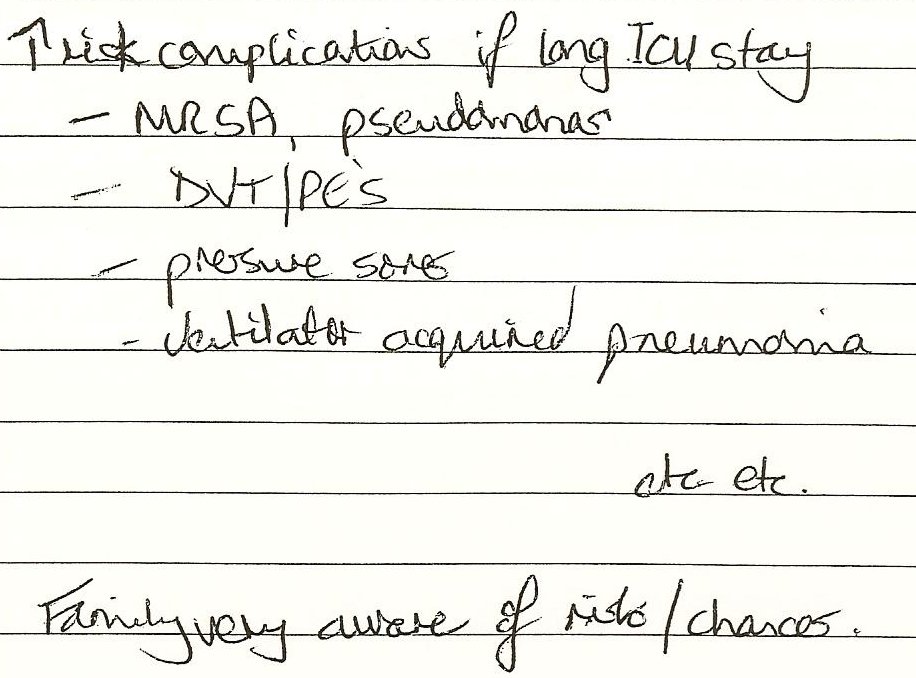 ↑ risk complications if long ICU stay
- MRSA, pseudomonas
- DVT/PE's
- pressure sores
- Ventilator acquired pneumonia
etc etc.
Family very aware of risks/chances.